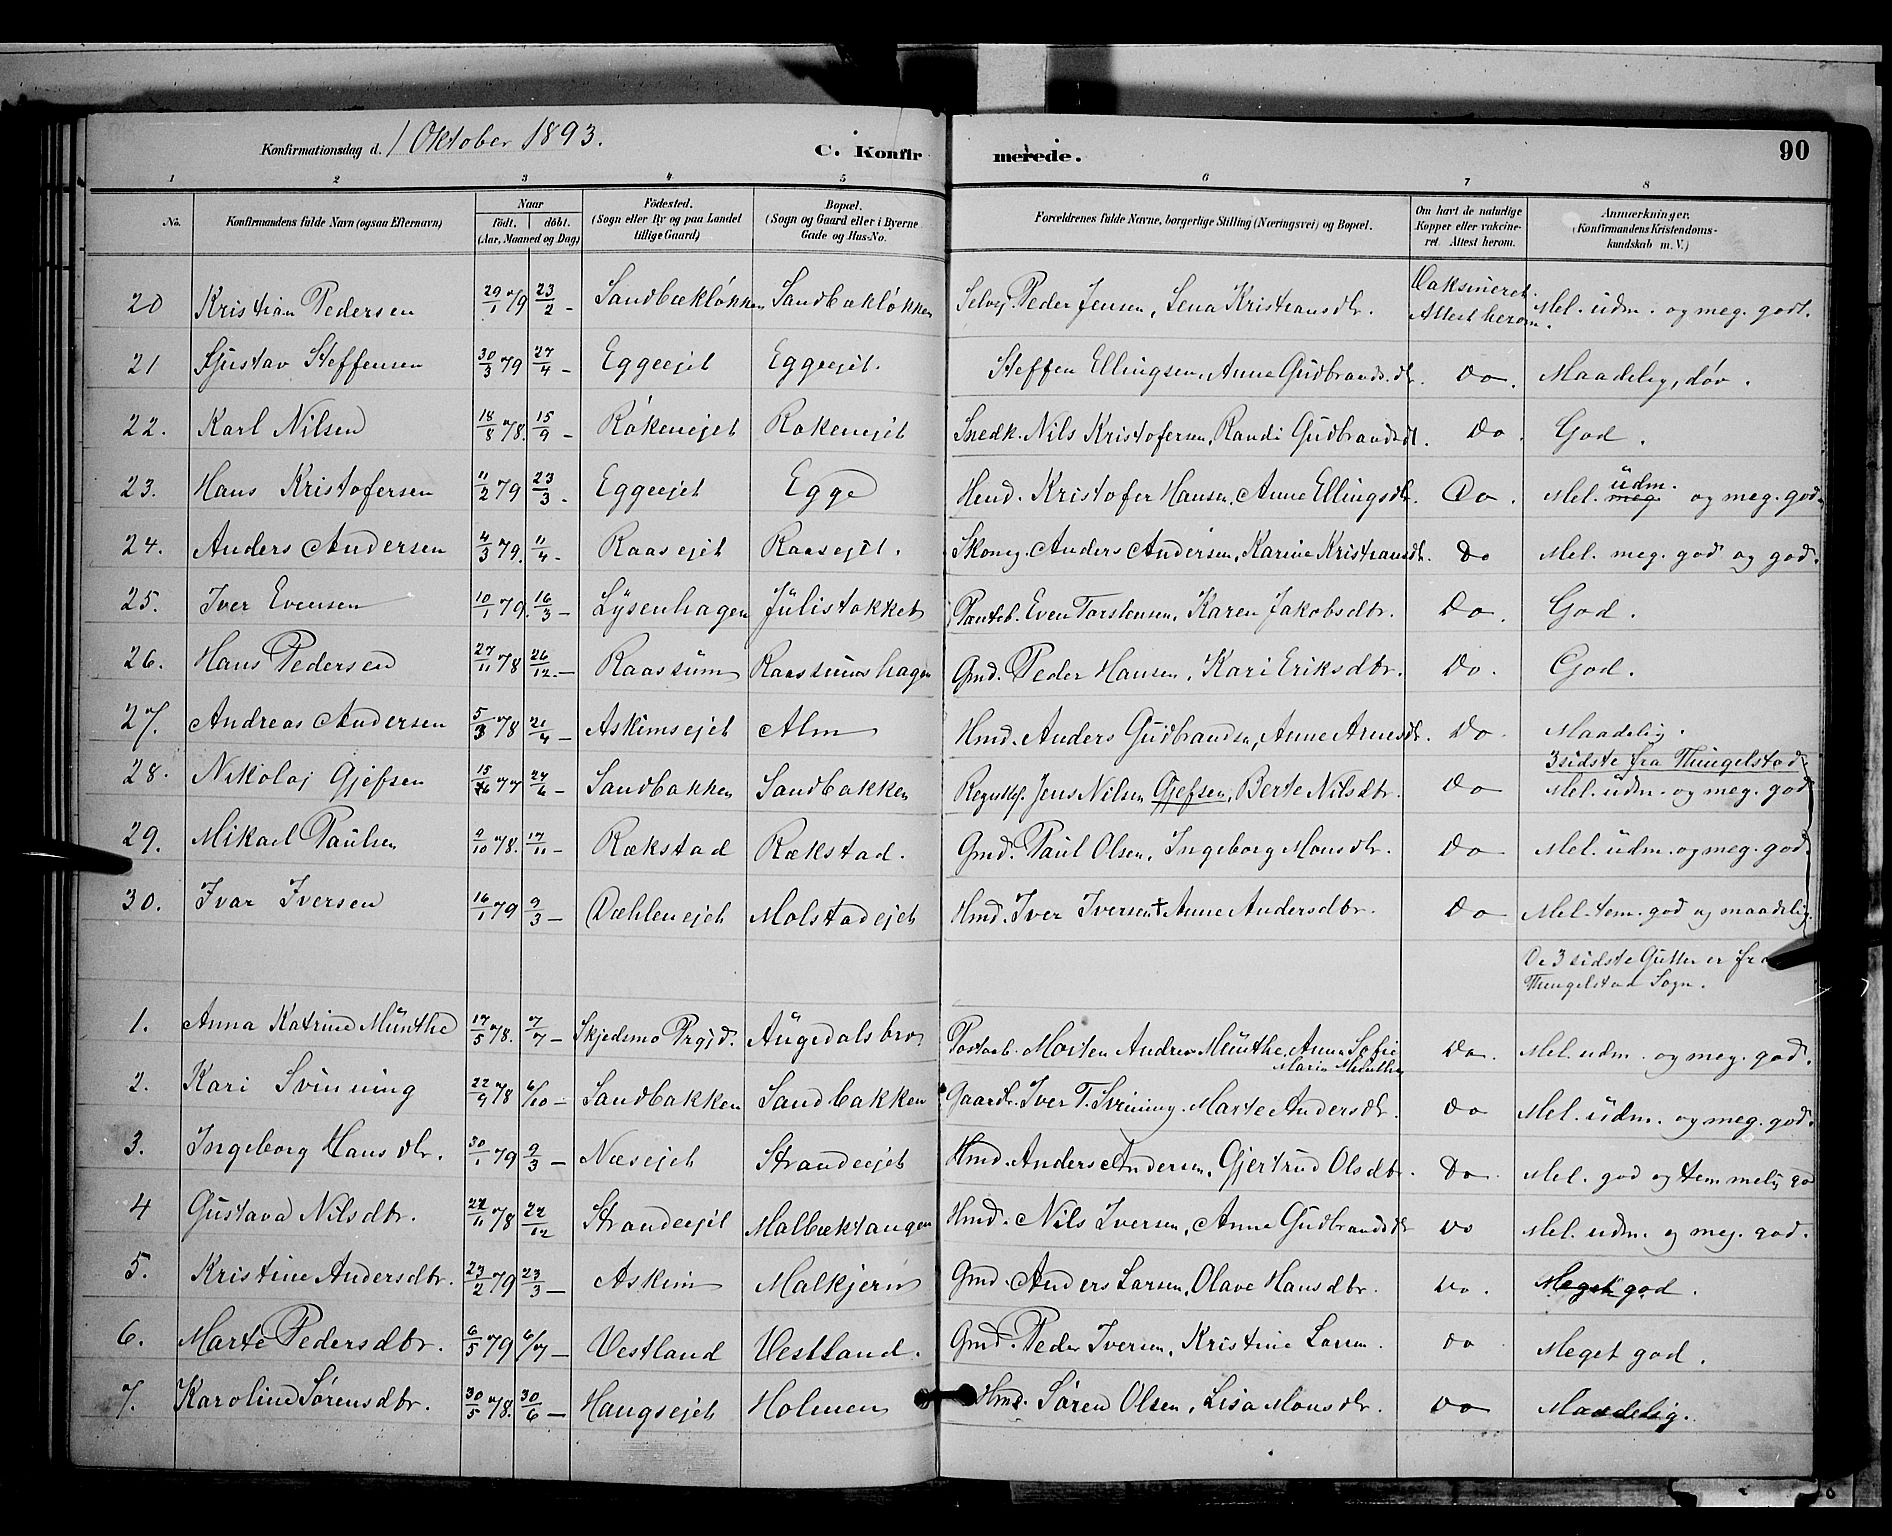 Konfirmationsdag d. 1 Oktober 1893.
C. Konfirmerede. 90
1 2 3 4 5 6 7 8
No. Konfirmandens fulde Navn (ogsaa Efternavn) Naar født. døbt. (Aar, Maaned og Dag) Födested. (Sogn eller By og paa Landet tillige Gaard) Bopæl. (Sogn og Gaard eller i Byerne Gade og Hus-No. Forældrenes fulde Navne, borgerlige Stilling (Næringsvei) og Bopæl. Om havt de naturlige Kopper eller vakcineret. Attest herom. Anmærkninger. (Konfirmandens Kristendomskundskab m. V.)
20 Kristian Pedersen 29/1 79 23/2 - Sandbækløkken Sandbakløkken Selvej Peder Jensen, Lena Kristiansdtr. Vaksineret. Attest herom. Mel. udm. og meg. godt.
21 Gustav Steffensen 30/3 79 27/4 - Eggeejet Eggeejet. Steffen Ellingsen, Anne Gudbrandsdtr. Do. Maadelig, døv.
22. Karl Nilsen 18/8 78. 15/9 - Rökenejet Rokenejet Snedk. Nils Kristofersen, Randi Gudbrandsdt. Do. God.
23. Hans Kristofersen 11/2 79 23/3 - Eggeejet Egge Hmd. Kristofer Hansen, Anne Ellingsdtr. Do. Mel. meg udm. og meg. god
24. Anders Andersen 4/3 79. 11/4 - Raasejet Raasejet. Skomg. Anders Andersen, Karine Kristiansdtr. Do Mel. meg. god og god.
25. Iver Evensen 10/1 79. 16/3 - Lysenhagen Julistokket Panteb. Even Torstensen, Karen Jakobsdtr. Do. God.
26. Hans Pedersen 27/11 78 26/12 - Raassum Raassumshagen Gmd. Peder Hansen, Kari Eriksdtr. Do. God.
27. Andreas Andersen 5/3 78 21/4 - Askimsejet Alm Hmd. Anders Gudbrandsen, Anne Arnesdtr. Do. Maadelig.
3 sidste fra Thingelstad
28. Nikolaj Gjefsen 15/6 77 24/6 - Sandbakken Sandbakken Jens Nilsen Gjefsen, Berte Nilsdtr. Do Mel. udm. og meg. god
29. Mikael Paulsen 9/10 78. 17/11 - Rækstad Rækstad. Gmd. Paul Olsen, Ingeborg Monsdtr. Do Mel. udm. og meg. god.
30. Ivar Iversen 16/1 79 9/3 - Dæhlenejet Molstadejet Hmd. Iver Iversen + Anne Andersdtr. Do Mel. tem. god og maadelig.
De 3 sidste Gutter er fra
Thingelstad Sogn.
1. Anna Katrine Munthe 17/5 78. 7/7 - Skjedsmo Prgjd. Augedalsbro Postaab. Morten Andreas Munthe, Anna Sofie Marie Munthe Do. Mel. udm. og meg. god.
2. Kari Svinning 22/9 78 6/10 - Sandbakken Sandbakken Gaardbr. Iver T. Svinning, Marte Andersdtr. Do Mel. udm. og meg. god.
3. Ingeborg Hansdtr. 30/1 79 9/3 - Næsejet Strandeejet Hmd. Anders Andersen, Gjertrud Olsdtr. Do. Mel. god og temmelig god
4 Gustava Nilsdtr. 22/11 78 22/12 Strandeejet Malbæktangen Hmd. Nils Iversen, Anne Gudbrandsdtr Do Mel. udm. og meg. god.
5. Kristine Andersdtr. 23/2 79 23/3 - Askim Malkjern Gmd. Anders Larsen, Olave Hansdtr. Do. Meget god.
6. Marte Pedersdtr. 6/5 79 6/7 - Vestland Vestland. Gmd. Peder Iversen, Kristine Larsen. Do Meget god.
7. Karoline Sörensdtr. 30/5 78. 30/6 - Haugsejet Holmen Hmd. Sören Olsen, Lisa Monsdtr. Do Maadelig.